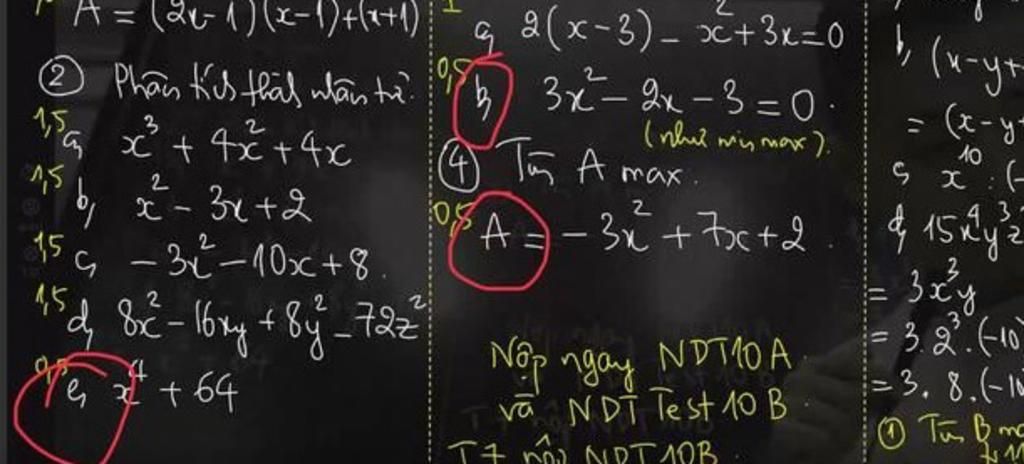 A = (2x-1)(x-1)+(x+1)
② Phân tích thành nhân tử.
1,5 a, x³ + 4x² + 4x
1,5 b, x² - 3x + 2
1,5 c, -3x² - 10x + 8.
1,5 d, 8x² - 16xy + 8y² - 72z²
0,5 e, x⁴ + 64
1
a, 2(x-3) - x² + 3x = 0
0,5 b, 3x² - 2x - 3 = 0.
(như min max).
④ Tìm A max.
0,5 A = -3x² + 7x + 2.
Nộp ngay NDT10A.
và NDT Test 10B
T7 nộp NDT10B.
b, (x-y+
= (x-y+
c, x¹⁰ : (-
d, 15x⁴y³z
= 3x³y
= 3.2³.(-10)
= 3. 8. (-10
① Tìm B